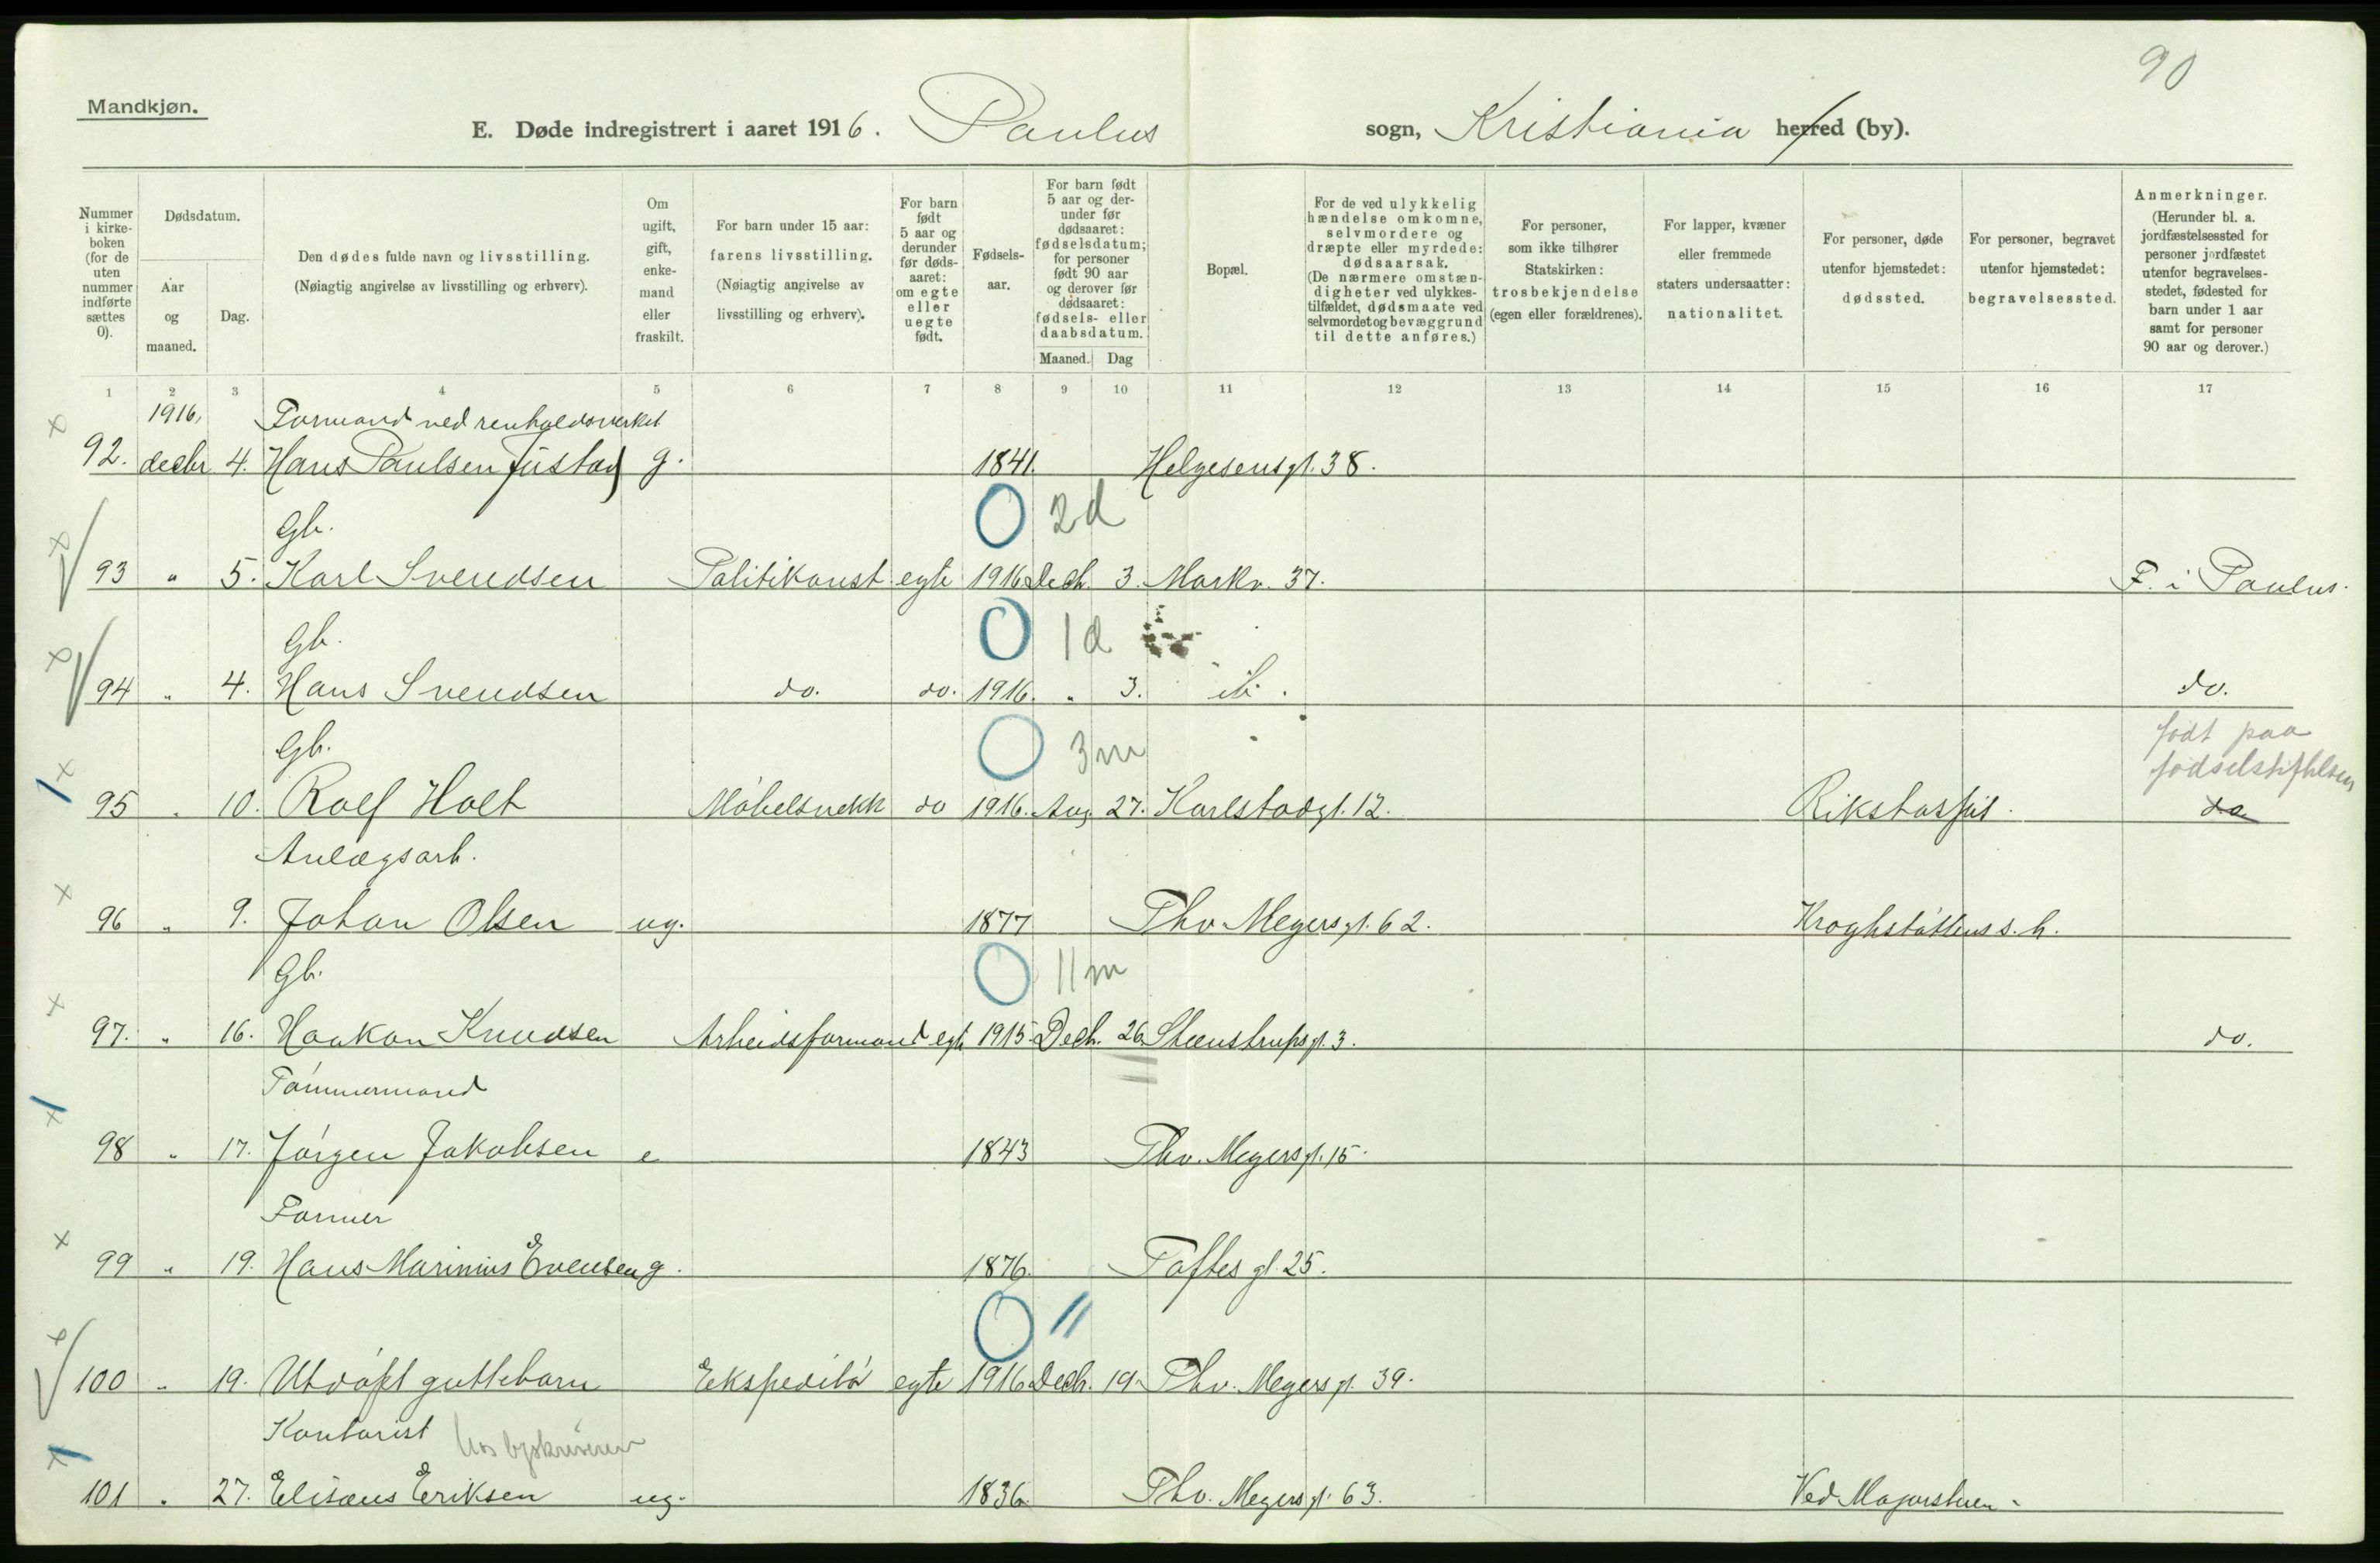 90
Mandkjøn.
E. Døde indregistrert i aaret 1916. Paulus sogn, Kristiania herred (by).
Nummer i kirkeboken (for de uten nummer indførte sættes 0).
Dødsdatum.
Aar og maaned.
Dag.
Den dødes fulde navn og livsstilling.
(Nøiagtig angivelse av livsstilling og erhverv).
Om ugift, gift, enkemand eller fraskilt.
For barn under 15 aar: farens livsstilling. (Nøiagtig angivelse av livsstilling og erhverv).
For barn født 5 aar og derunder før dødsaaret: om egte eller uegte født.
Fødselsaar.
For barn født 5 aar og derunder før dødsaaret: fødselsdatum; for personer født 90 aar og derover før dødsaaret: fødsels- eller daabsdatum.
Maaned. Dag
Bopæl.
For de ved ulykkelig hændelse omkomne, selvmordere og dræpte eller myrdede: dødsaarsak. (De nærmere omstændigheter ved ulykkestilfældet, dødsmaate ved selvmordet og bevæggrund til dette anføres.)
For personer, som ikke tilhører Statskirken: trosbekjendelse (egen eller forældrenes).
For lapper, kvæner eller fremmede staters undersaatter: nationalitet.
For personer, døde utenfor hjemstedet: dødssted.
For personer, begravet utenfor hjemstedet: begravelsessted.
Anmerkninger. (Herunder bl. a. jordfæstelsessted for personer jordfæstet utenfor begravelsesstedet, fødested for barn under 1 aar samt for personer 90 aar og derover.)
1 2 3 4 5 6 7 8 9 10 11 12 13 14 15 16 17
1916, Formand ved renholdsverket
92. decbr 4. Hans Paulsen Justad g. 1841. Helgesensgt. 38.
Gb. 0 2d
93 " 5. Karl Svendsen Politikonst egte 1916 Decb. 3. Markv. 37. F. i Paulus.
Gb. 0 1d
94 " 4. Hans Svendsen do. do. 1916. " 3. ib. do.
Gb. 0 3m født paa fødselstiftelsen
95 " 10. Rolf Holt Möbelsnekk do 1916. Aug. 27. Karlstadgt. 12. Rikshospit. do.
Anlægsarb.
96 " 9. Johan Olsen ug. 1877 Thv Meyersgt. 62. Kroghstöttens s. h.
Gb. 0 11m
97. " 16. Haakon Knudsen Arbeidsformand egte 1915. Decb. 26. Steenstrupsgt. 3. do.
Tömmermand
98 " 17. Jörgen Jakobsen e 1843 Thv. Meyersgt. 15.
Former
99 " 19. Hans Marinius Evensen g. 1876. Toftes gt. 25.
0 11
100 " 19. Utdöpt guttebarn Ekspeditör egte 1916 Decb. 19. Thv. Meyersgt. 39.
Kontorist hos byskriveren
101 " 27. Elisæus Eriksen ug. 1836. Thv. Meyersgt. 63. Ved Majorstuen.